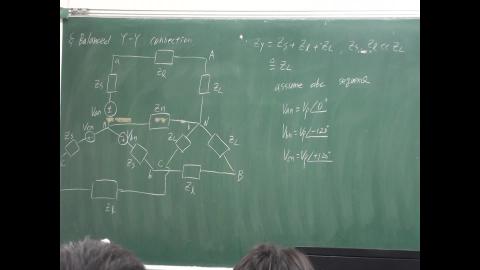 § Balanced Y-Y connection
a
A
Zℓ
Zs
ZL
Van
Zn
n
N
Vcn
Vbn
Zs
Zs
ZL
ZL
c
b
C
B
Zℓ
Zℓ
ZY = Zs + Zℓ + ZL , Zs, Zℓ << ZL
≅ ZL
assume abc sequence
Van = Vp∠0°
Vbn = Vp∠-120°
Vcn = Vp∠+120°